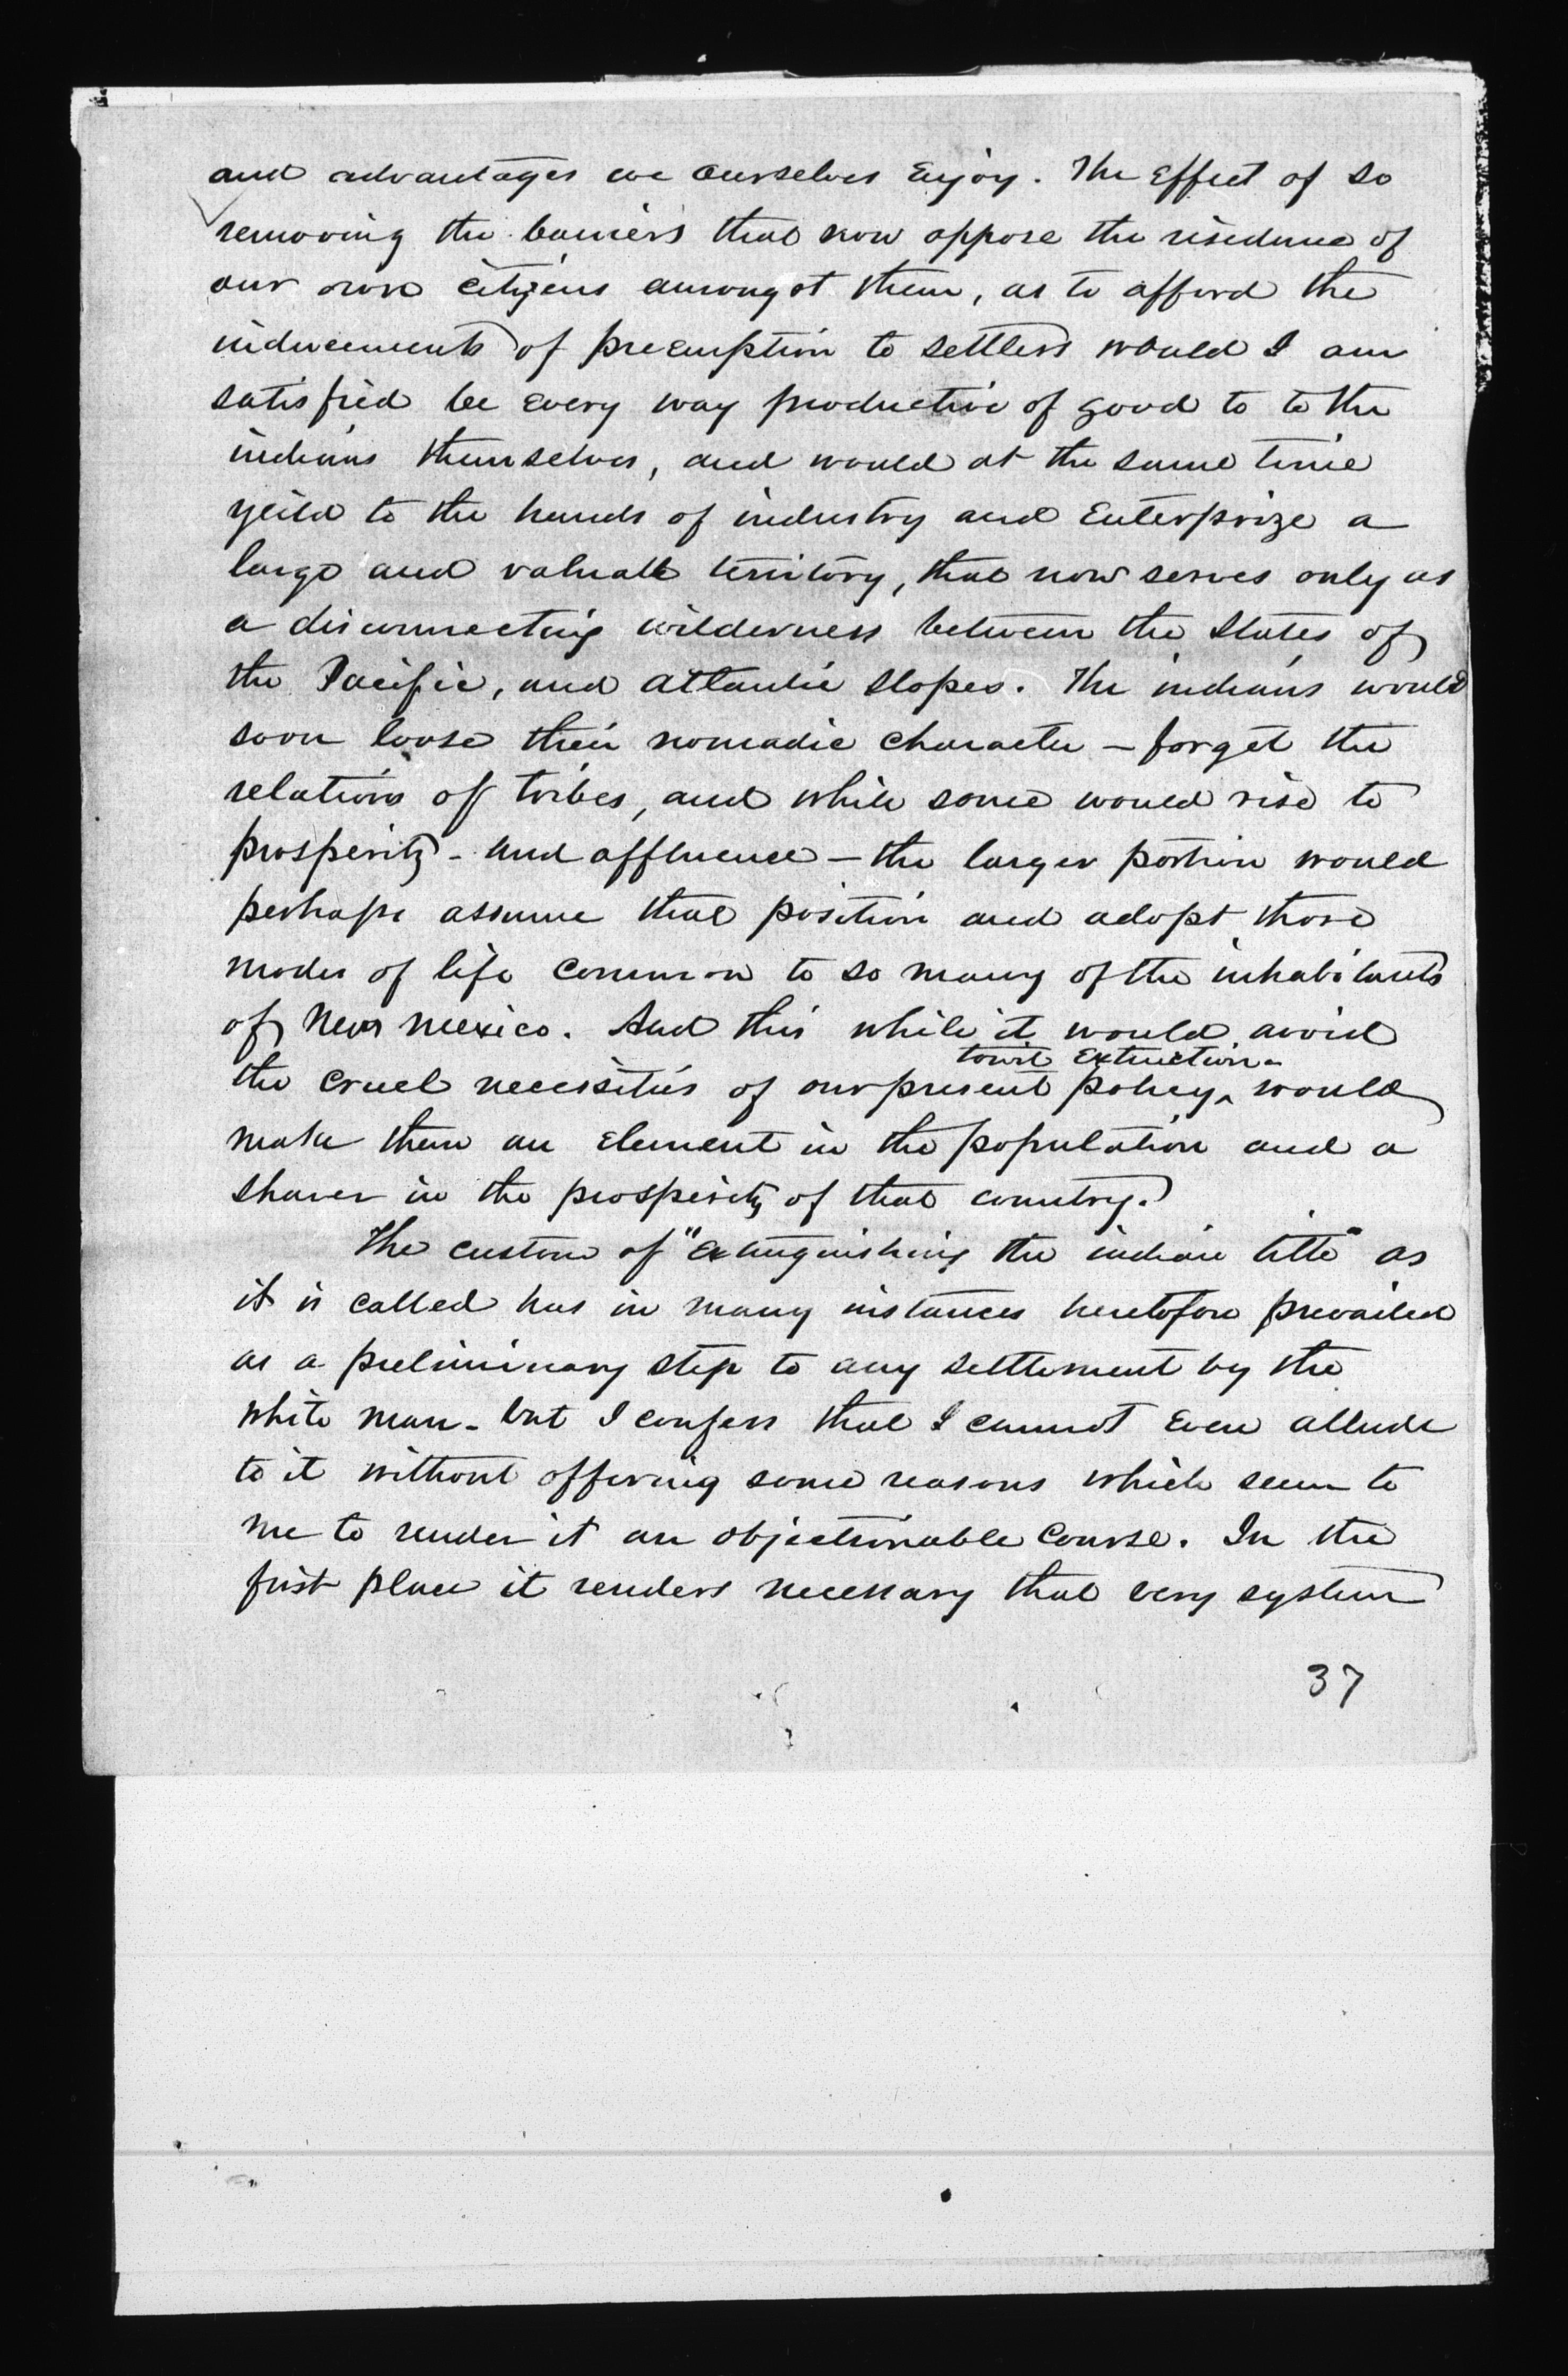 and advantages we ourselves enjoy. The effect of so
removing the barriers that now oppose the risedence of
our own citizens amongst them, as to afford the
inducements of preemption to settlers would I am
satisfied be every way productive of good to to the
indians themselves, and would at the same time
yeild to the hands of industry and enterprize a
large and valuable territory, that now serves only as
a disconnecting wilderness between the States of
the Pacific, and atlantic slopes. The indians would
soon loose their nomadic character – forget the
relations of tribes, and while some would rise to
prosperity - and affluence – the larger portion would
perhaps assume that position and adopt those
modes of life common to so many of the inhabitants
of New Mexico. And this while it would avoid
extinction -
the cruel necessities of our present policy ^ would
make them an element in the population and a
sharer in the prosperity of that country.
The custom of "extinguishing the indian title" as
it is called has in many instances heretofore prevailed
as a preliminary step to any settlement by the
white man - but I confess that I cannot even allude
to it without offering some reasons which seem to
me to render it an objectionable course. In the
first place it renders necessary that very system
37